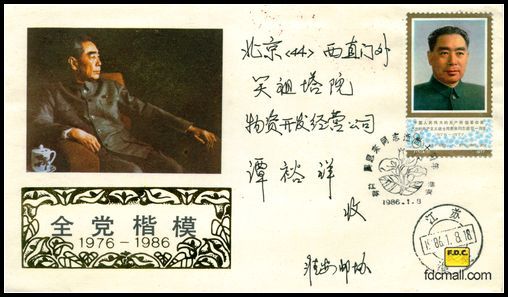 全党楷模
1976－1986
北京(44) 西直门外
吴祖塔院
物资开发经营公司
谭裕祥
收
淮安邮协
1986.1.8
江苏
1986.1.8.18
F.D.C.
fdcmall.com